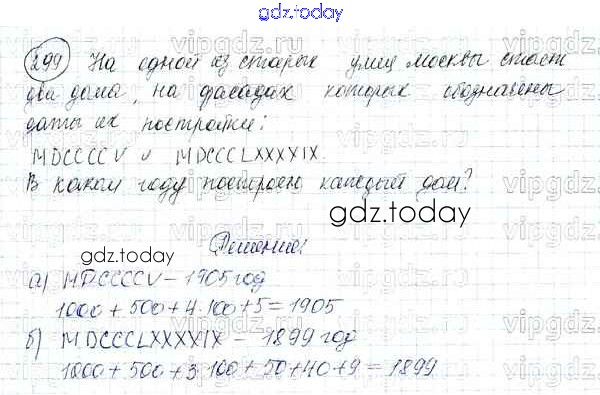 gdz.today
299 На одной из старых улиц Москвы стоят
два дома, на фасадах которых обозначены
даты их постройки:
MDCCCCV и MDCCCLXXXXIX.
В каком году построен каждый дом?
gdz.today
gdz.today
Решение:
а) MDCCCCV – 1905 год
1000 + 500 + 4·100 + 5 = 1905
б) MDCCCLXXXXIX – 1899 год
1000 + 500 + 3·100 + 50 + 40 + 9 = 1899
vipgdz.ru